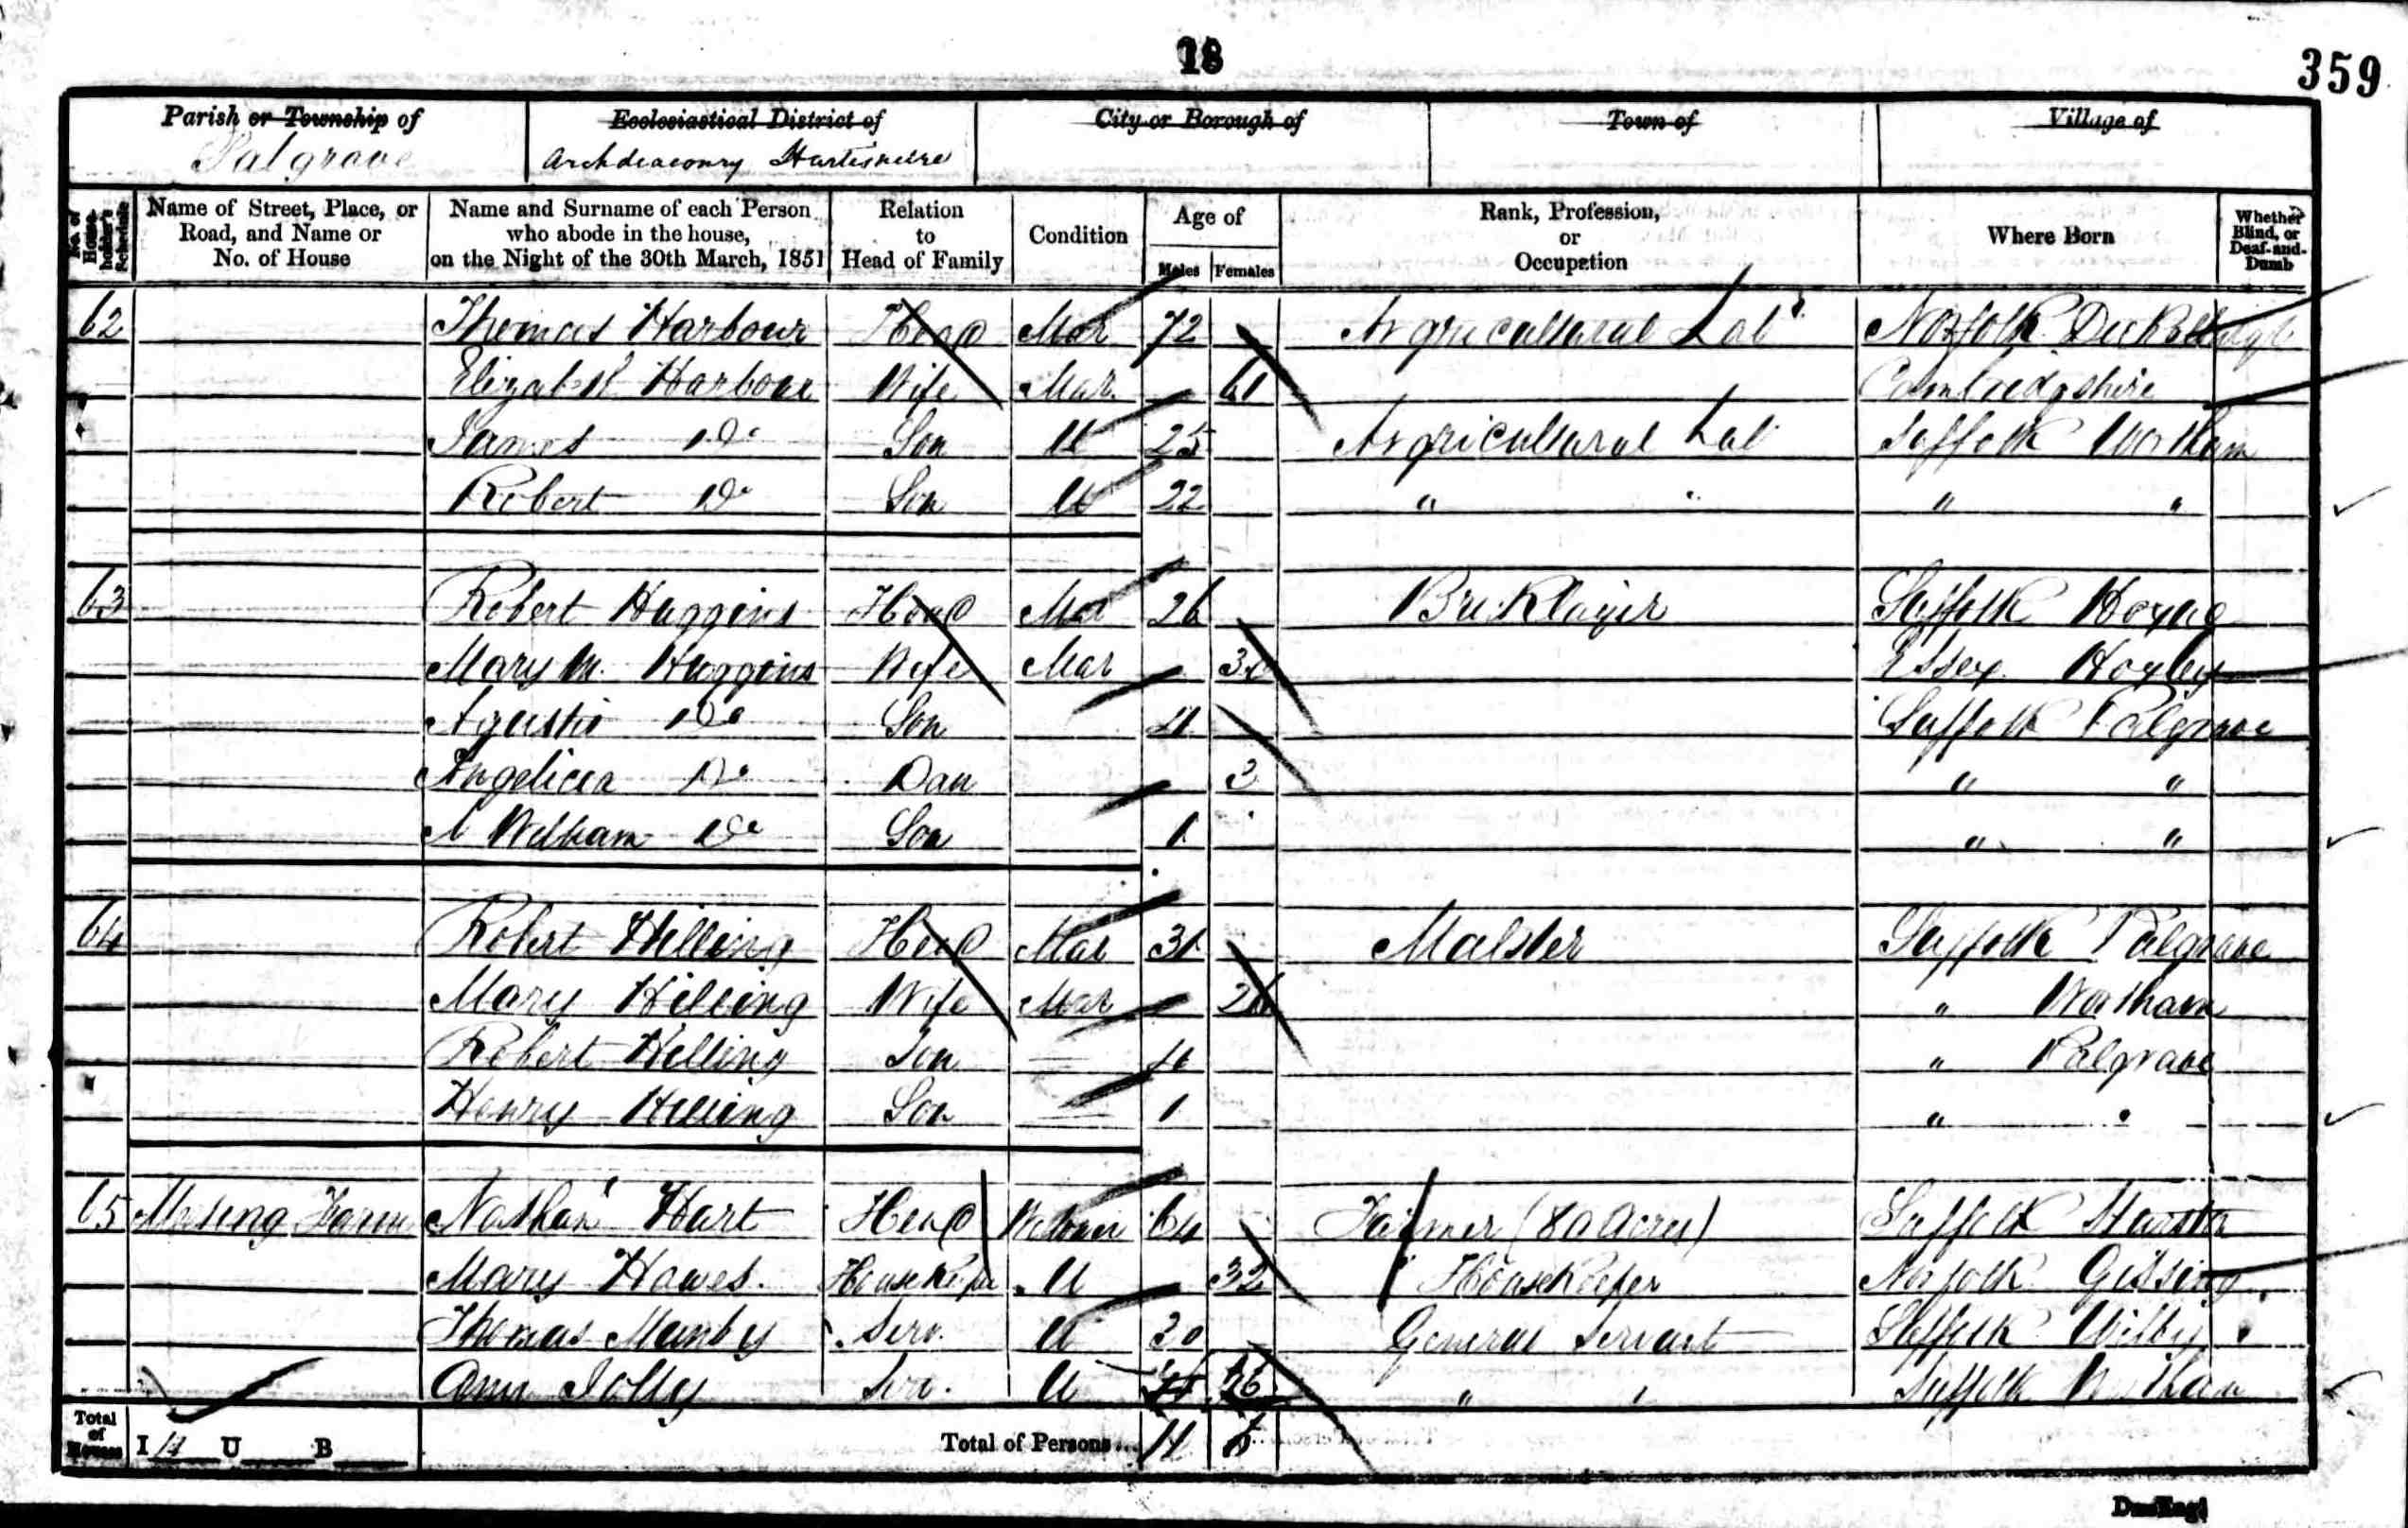 18
359
Parish or Township of
Palgrave
Ecclesiastical District of
Archdeaconry Hartismere
City or Borough of
Town of
Village of
No. of House-holder's Schedule
Name of Street, Place, or Road, and Name or No. of House
Name and Surname of each Person who abode in the house, on the Night of the 30th March, 1851
Relation to Head of Family
Condition
Age of
Males Females
Rank, Profession, or Occupation
Where Born
Whether Blind, or Deaf-and-Dumb
62 Thomas Harbour Head Mar 72 Agricultural Labr Norfolk
Elizabeth Harbour Wife Mar 61 Cambridgshire
James Do Son U 25 Agricultural Lab Suffolk Wortham
Robert Do Son U 22 " " " "
63 Robert Huggins Head Mar 26 Bricklayer Suffolk Hoxne
Mary M. Huggins Wife Mar Essex
Do Son 4 Suffolk Palgrave
Angelica Do Dau 3 " "
A William Do Son 1 " "
64 Robert Hilling Head Mar 31 Malster Suffolk Palgrave
Mary Hilling Wife Mar 26 " Wortham
Robert Hilling Son 4 " Palgrave
Henry Hilling Son 1 " "
65 Farm Nathan Hart Head Widower 64 Farmer (80 Acres) Suffolk
Mary Hawes. Housekeeper U 32 Housekeeper Norfolk Gissing
Thomas Manby Serv. U 20 General Servant Suffolk Wilby
Ann Jolly Serv. U 16 " " Suffolk Wortham
Total of Houses
I 4 U B
Total of Persons... 11 6